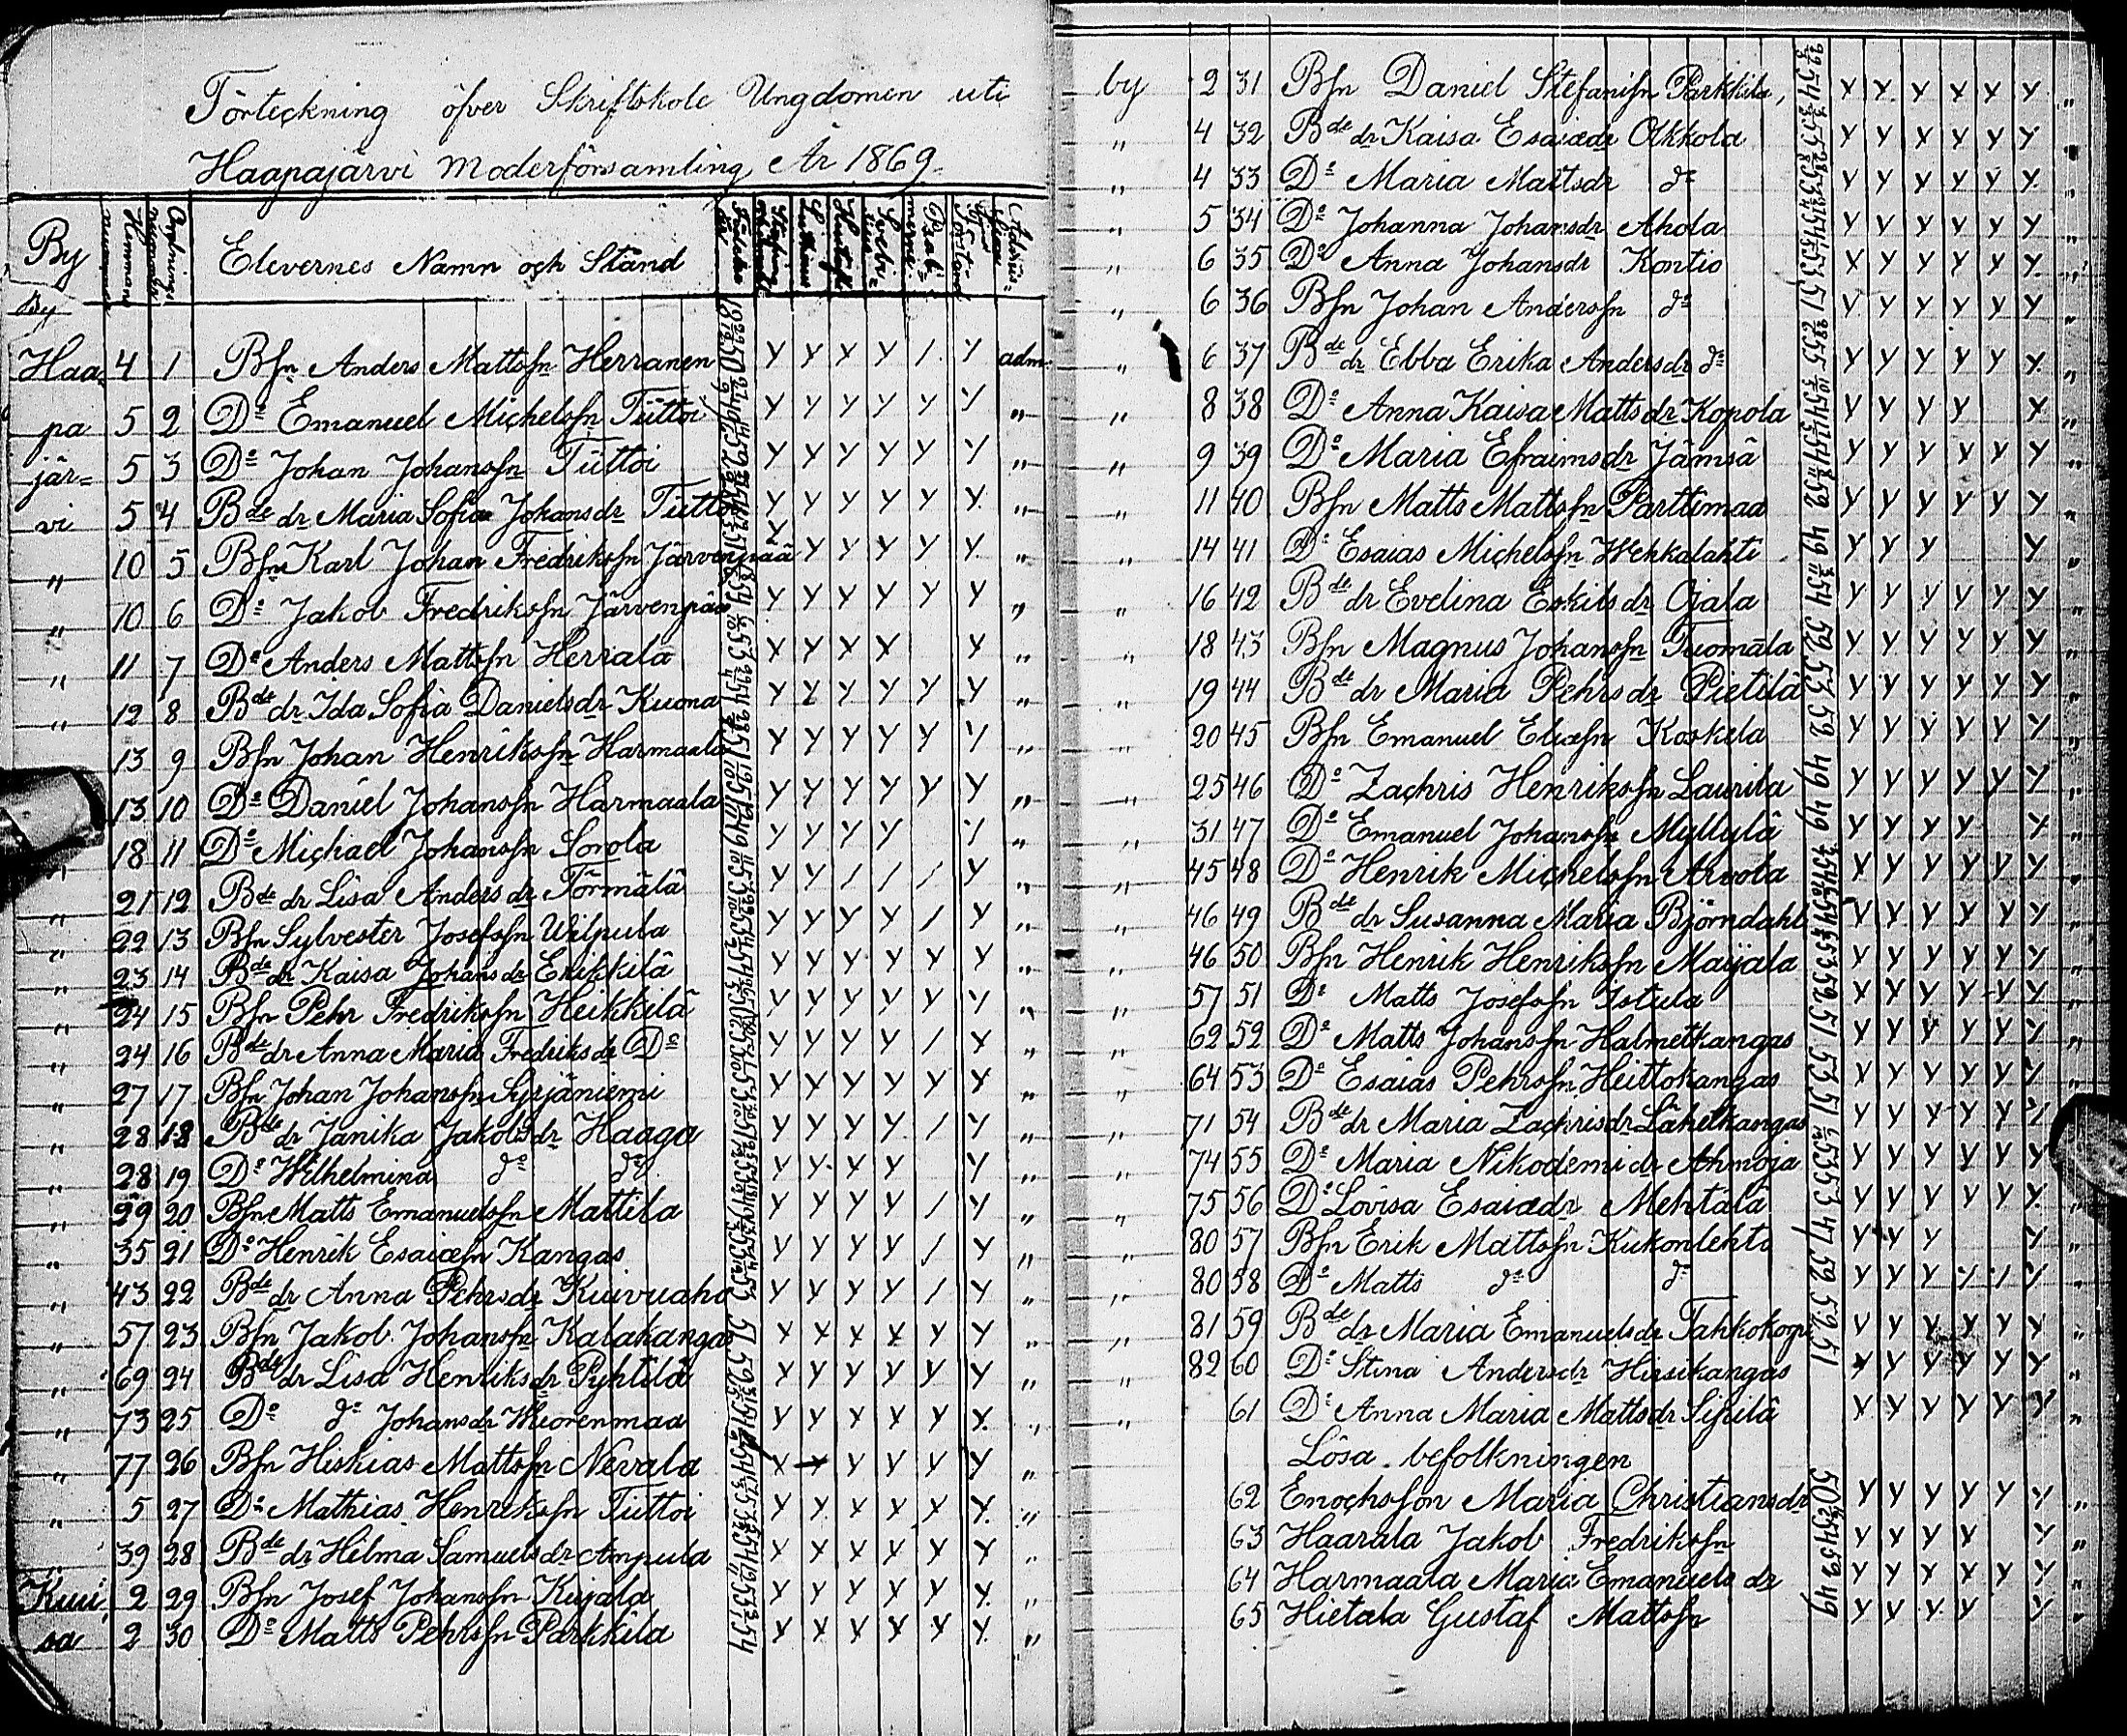 Förteckning öfver Skriftskole Ungdomen uti
Haapajärvi Moderförsamling År 1869.
By Hemman nummer Ordnings nummer Elevernes Namn och Stånd
By
Haa= 4 1 Bsn Anders Mattssn Herranen Y Y Y Y / Y adm.
pa 5 2 Do Emanuel Michelssn Tiittoi Y Y Y Y Y Y "
jär= 5 3 Do Johan Johanssn Tiittoi Y Y Y Y Y Y "
vi 5 4 Bde dr Maria Sofia Johansdr Tiitto Y Y Y Y Y Y "
" 10 5 Bsn Karl Johan Fredrikssn Järvenpää Y Y Y Y Y Y "
" 10 6 Do Jakob Fredrikssn Järvenpää Y Y Y Y Y Y "
" 11 7 Do Anders Mattssn Herrala Y Y Y Y Y "
" 12 8 Bde dr Ida Sofia Danielsdr Kuona Y Y Y Y Y Y "
" 13 9 Bsn Johan Henrikssn Harmaala Y Y Y Y Y Y "
" 13 10 Do Daniel Johanssn Harmaala Y Y Y Y Y Y "
" 18 11 Do Michael Johanssn Sorola Y Y Y Y Y "
" 21 12 Bde dr Lisa Andersdr Törmälä Y Y / / / Y "
" 22 13 Bsn Sylvester Josefssn Wilpula Y Y Y Y / Y "
" 23 14 Bde dr Kaisa Johansdr Erikkilä Y Y Y Y Y Y "
" 24 15 Bsn Pehr Fredrikssn Heikkilä Y Y Y Y Y Y "
" 24 16 Bde dr Anna Maria Fredriksdr Do Y Y Y Y / Y "
" 27 17 Bsn Johan Johanssn Syrjäniemi Y Y Y Y Y Y "
" 28 18 Bde dr Janika Jakobsdr Haaga Y Y Y Y / Y "
" 28 19 Do Wilhelmina do do Y Y Y Y Y "
" 29 20 Bsn Matts Emanuelssn Mattila Y Y Y Y / Y "
" 35 21 Do Henrik Esaiæsn Kangas Y Y Y Y / Y "
" 43 22 Bde dr Anna Pehrsdr Kuivuaho Y Y Y Y / Y "
" 57 23 Bsn Jakob Johanssn Kalakangas 51 Y Y Y Y Y Y "
" 69 24 Bde dr Lisa Henriksdr Pyhtilä Y Y Y Y Y Y "
" 73 25 Do do Johansdr Wuorenmaa Y Y Y Y Y Y "
" 77 26 Bsn Hiskias Mattssn Nevala Y Y Y Y Y Y "
" 5 27 Do Mathias Henrikssn Tiittoi Y Y Y Y Y Y "
" 39 28 Bde dr Hilma Samuelsdr Ampula Y Y Y Y Y Y "
Kuu 2 29 Bsn Josef Johanssn Kujala Y Y Y Y Y Y "
sa 2 30 Do Matts Pehrssn Parkkila Y Y Y Y Y Y "
by 2 31 Bsn Daniel Stefanssn Parkkila, Y Y Y Y Y Y "
" 4 32 Bde dr Kaisa Esaiædr Okkola Y Y Y Y Y Y "
" 4 33 Do Maria Mattsdr do Y Y Y Y Y Y "
" 5 34 Do Johanna Johansdr Ahola Y Y Y Y Y Y "
" 6 35 Do Anna Johansdr Kontio Y Y Y Y Y Y "
" 6 36 Bsn Johan Anderssn do Y Y Y Y Y Y "
" 6 37 Bde dr Ebba Erika Andersdr do Y Y Y Y Y Y "
" 8 38 Do Anna Kaisa Mattsdr Kopola Y Y Y Y Y "
" 9 39 Do Maria Efraimsdr Jämsä Y Y Y Y Y Y "
" 11 40 Bsn Matts Mattssn Parttimaa 52 Y Y Y Y Y Y "
" 14 41 Do Esaias Michelssn Wehkalahti 49 Y Y Y Y "
" 16 42 Bde dr Evelina Eskilsdr Ojala Y Y Y Y Y Y "
" 18 43 Bsn Magnus Johanssn Tuomala 52 Y Y Y Y Y Y "
" 19 44 Bde dr Maria Pehrsdr Pietilä 53 Y Y Y Y Y Y "
" 20 45 Bsn Emanuel Eliæsn Koskela 52 Y Y Y Y Y Y "
" 25 46 Do Zachris Henrikssn Laurila 49 Y Y Y Y Y Y "
" 31 47 Do Emanuel Johanssn Myllylä 49 Y Y Y Y Y "
" 45 48 Do Henrik Michelssn Arvola Y Y Y Y Y Y "
" 46 49 Bde dr Susanna Maria Björndahl Y Y Y Y Y Y "
" 46 50 Bsn Henrik Henrikssn Maijala Y Y Y Y Y Y "
" 57 51 Do Matts Josefssn Istula 52 Y Y Y Y Y Y "
" 62 52 Do Matts Johanssn Halmetkangas 51 Y Y Y Y Y Y "
" 64 53 Do Esaias Pehrssn Heittokangas 53 Y Y Y Y Y Y "
" 71 54 Bde dr Maria Zachrisdr Lähetkangas 51 Y Y Y Y Y Y "
" 74 55 Do Maria Nikodemi dr Ahmoja Y Y Y Y Y Y "
" 75 56 Do Lovisa Esaiædr Mehtälä 53 Y Y Y Y Y Y "
" 80 57 Bsn Erik Mattssn Kukonlehto 47 Y Y Y Y "
" 80 58 Do Matts do do 52 Y Y Y Y Y Y "
" 81 59 Bde dr Maria Emanuelsdr Tahkokorpi 52 Y Y Y Y Y Y "
" 82 60 Do Stina Andersdr Hirsikangas 51 Y Y Y Y Y Y "
" 61 Do Anna Maria Mattsdr Sipilä Y Y Y Y Y Y "
Lösa befolkningen
62 Enochsson Maria Christiansdr 50 Y Y Y Y Y Y "
63 Haarala Jakob Fredrikssn Y Y Y Y Y "
64 Harmaala Maria Emanuels dr Y Y Y Y Y Y "
65 Hietala Gustaf Mattssn 49 Y Y Y Y Y "